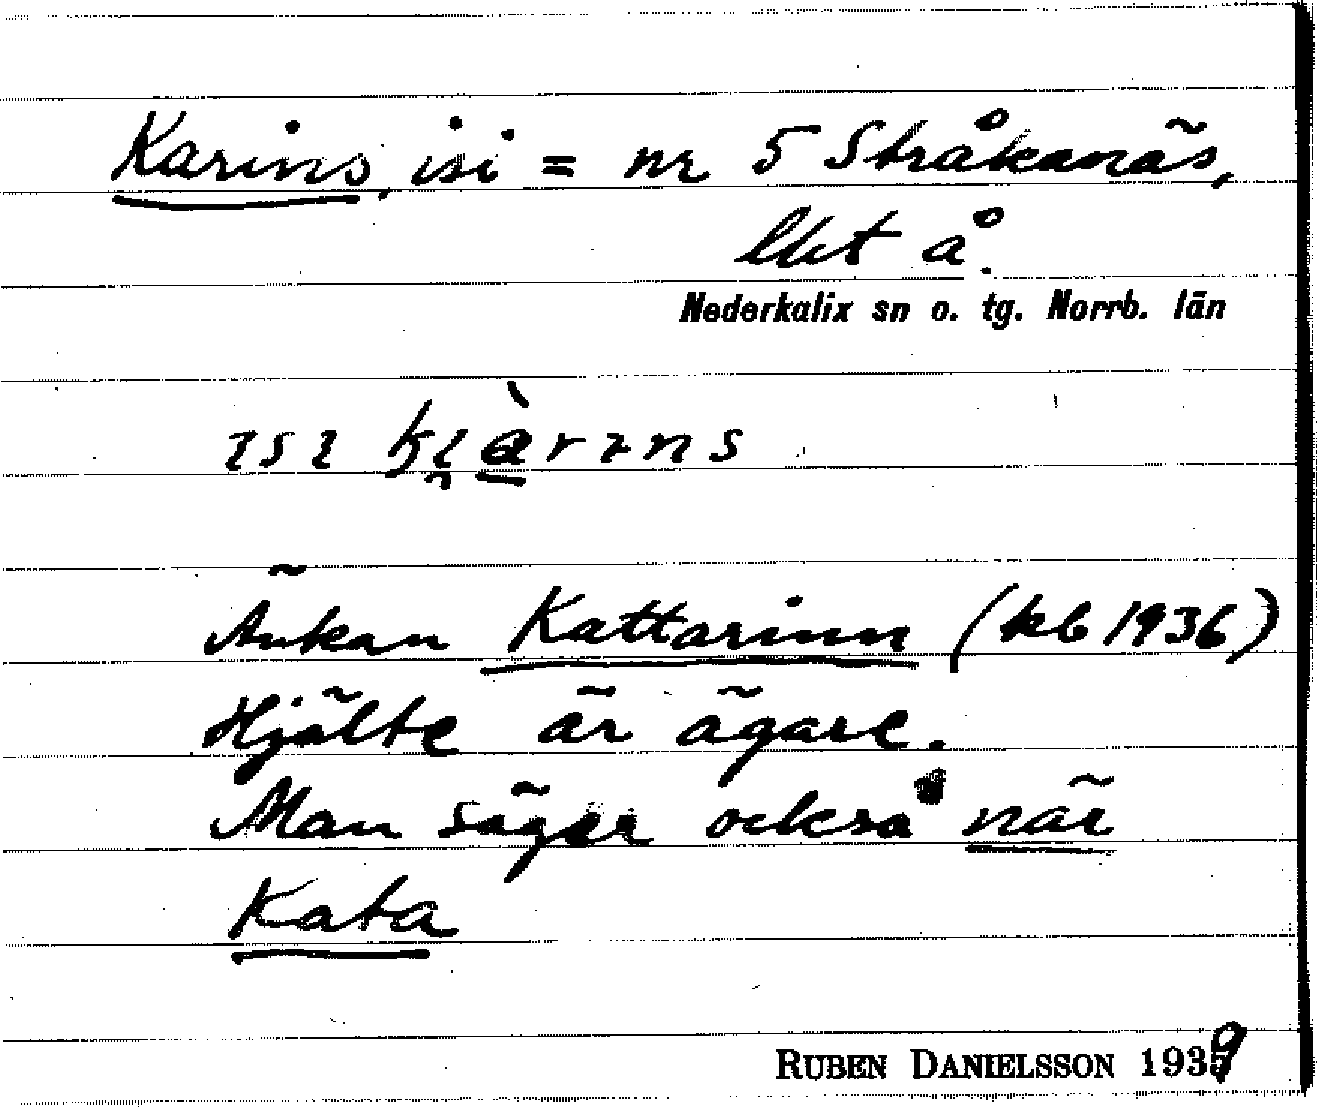 Karins, isi = nr 5 Stråkanäs,
lht å.
Nederkalix sn o. tg. Norrb. län
ɪsɪ
Änkan Kattarinn (kb 1936)
Hjälte är ägare.
Man säger också när
Kata
RUBEN DANIELSSON 1939